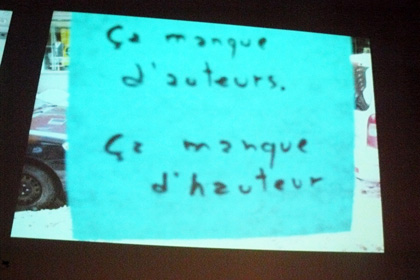 Ça manque
d'auteurs.
Ça manque
d'hauteur